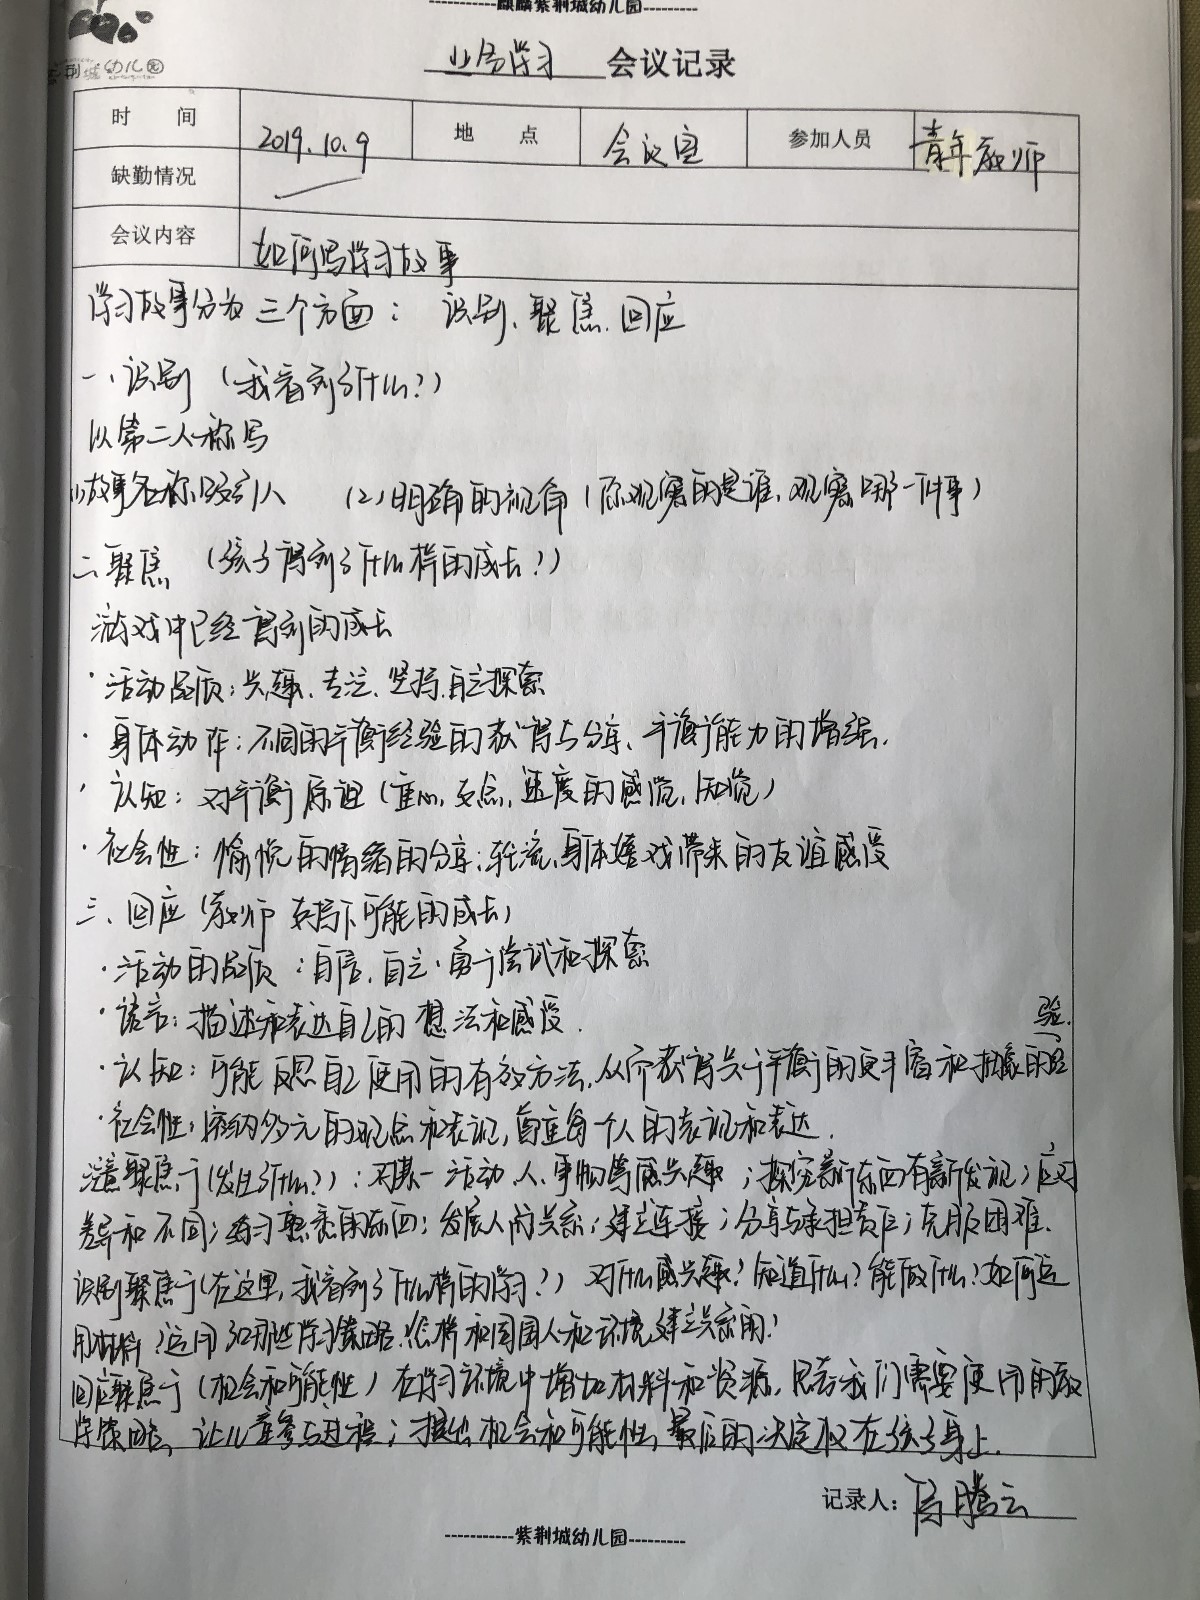 麒麟紫荆城幼儿园
紫荆城幼儿园
业务学习 会议记录
时 间 2019.10.9 地 点 会议室 参加人员 青年教师
缺勤情况
会议内容 如何写学习故事
学习故事分为三个方面：识别、聚焦、回应
一、识别（我看到了什么？）
以第二人称写
(1)故事名称吸引人 (2)明确的视角（你观察的是谁，观察哪一件事）
二、聚焦（孩子得到了什么样的成长？）
游戏中已经得到的成长
·活动品质：兴趣、专注、坚持、自主探索
·身体动作：不同的平衡经验的获得与分享、平衡能力的增强.
·认知：对平衡原理（重心，支点，速度的感觉，知觉）
·社会性：愉悦的情绪的分享；轮流、身体嬉戏带来的友谊感受
三、回应（教师支持下可能的成长）
·活动的品质：自信、自主、勇于尝试和探索
·语言：描述和表达自己的想法和感受.
·认知：可能反思自己使用的有效方法，从而获得关于平衡的更丰富和抽象的经验.
·社会性：接纳多元的观点和表征，尊重每一个人的表征和表达.
注意聚焦于（发生了什么？）：对某一活动、人、事物等感兴趣；探究新东西有新发现；应对
差异和不同；练习熟悉的东西；发展人际关系；建立连接；分享与承担责任；克服困难.
识别聚焦于（在这里，我看到了什么样的学习？）对什么感兴趣？知道什么？能做什么？如何运
用材料？运用了哪些学习策略？怎样和周围人和环境建立关系的？
回应聚焦于（机会和可能性）在学习环境中增加材料和资源，思考我们需要使用的教
学策略，让儿童参与过程；提供机会和可能性，最后的决定权在孩子身上.
记录人： 腾云
紫荆城幼儿园